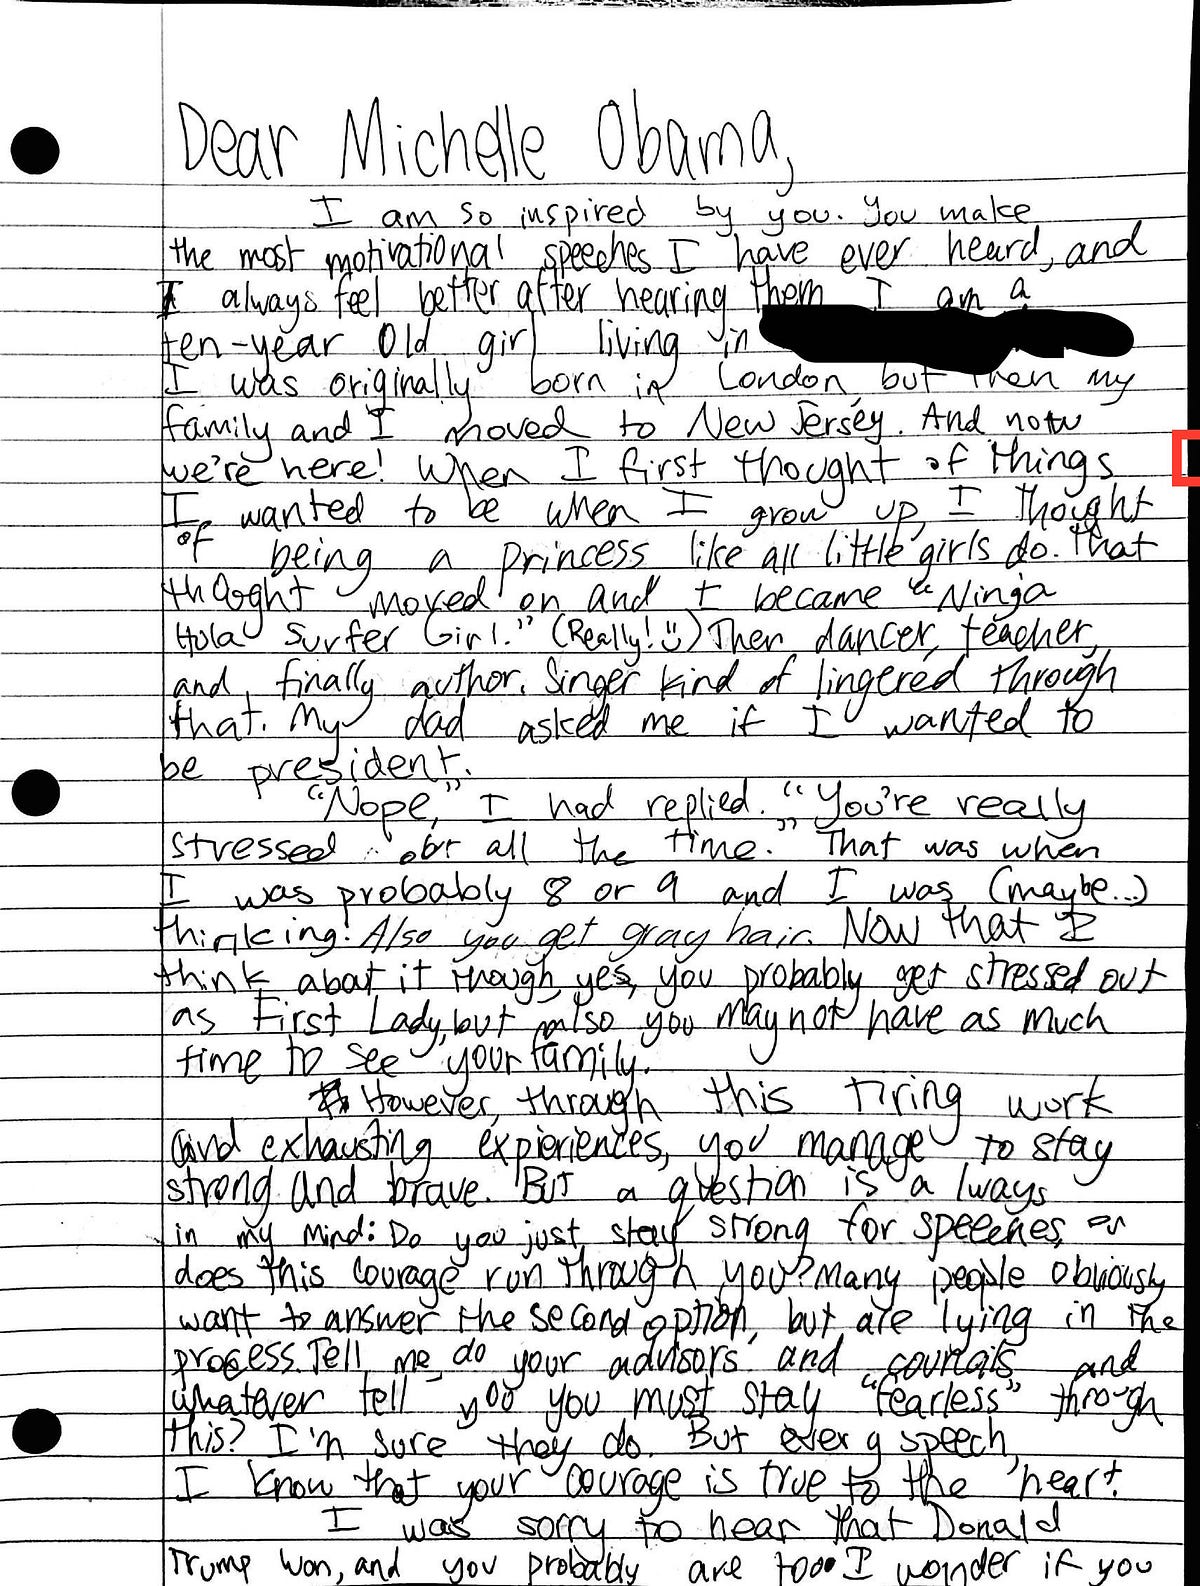 Dear Michelle Obama,
I am so inspired by you. You make
the most motivational speeches I have ever heard, and
I always feel better after hearing them I am a
ten-year old girl living in
I was originally born in London, but then my
family and I moved to New Jersey. And now
we're here! When I first thought of things
I wanted to be when I grow up, I thought
of being a princess like all little girls do. That
thought moved on and I became "Ninja
Hula Surfer Girl." (Really! :)) Then dancer, teacher,
and, finally author. Singer kind of lingered through
that. My dad asked me if I wanted to
be president.
"Nope," I had replied. "You're really
stressed all the time." That was when
I was probably 8 or 9 and I was (maybe...)
thinking: Also you get gray hair. Now that I
think about it though, yes, you probably get stressed out
as First Lady, but also you may not have as much
time to see your family.
However, through this tiring work
and exhausting expieriences, you manage to stay
strong and brave. But a question is always
in my mind: Do you just stay strong for speeches, or
does this courage run through you? Many people obviously
want to answer the second option, but are lying in the
process. Tell me, do your advisors and councils and
whatever tell you you must stay "fearless" through
this? I'm sure they do. But every speech,
I know that your courage is true to the heart.
I was sorry to hear that Donald
Trump won, and you probably are too. I wonder if you